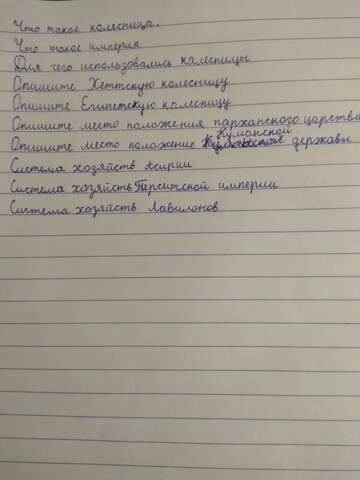 Что такое колесница.
Что такое империя
Для чего использовались калесницы
Опишите Хеттскую колесницу
Опишите Египетскую колесницу
Опишите место положения парханского царства
Кушанской
Опишите место положение державы
Система хозяйств Асирии
Система хозяйств империи
Система хозяйств